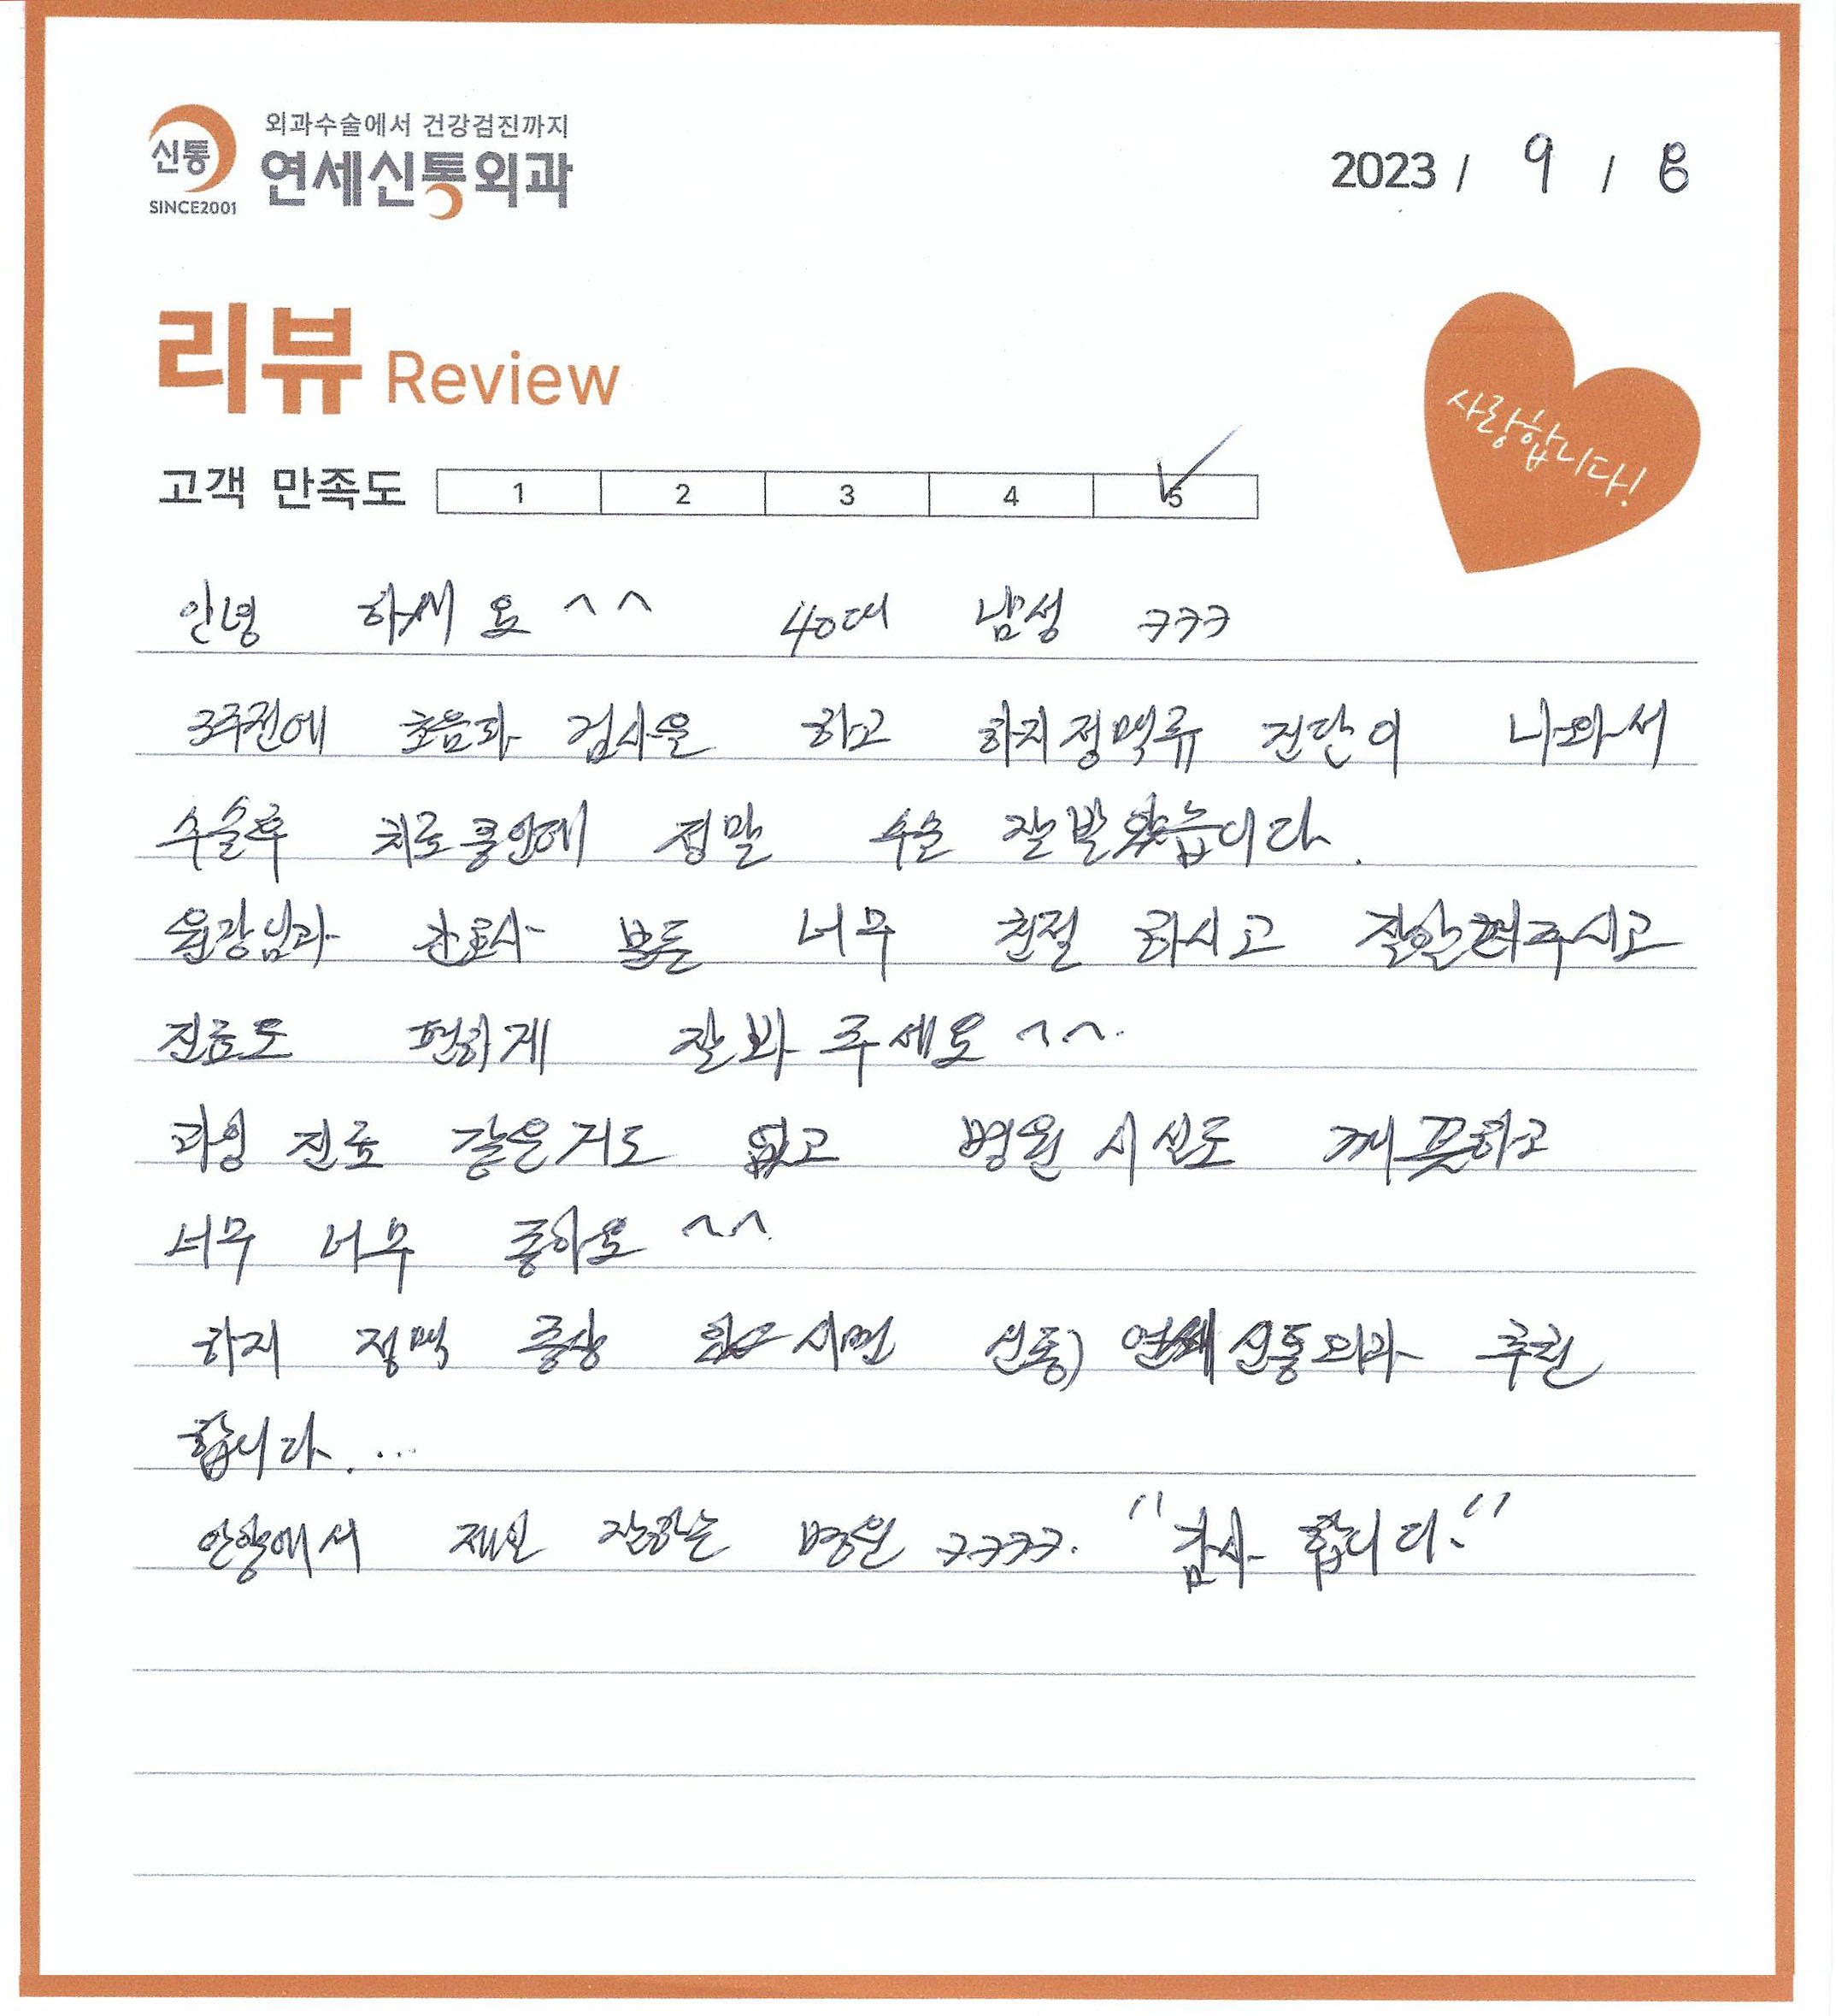 신통
SINCE2001
외과수술에서 건강검진까지
연세신통외과
2023 / 9 / 8
리뷰 Review
사랑합니다!
고객 만족도 1 2 3 4 5
안녕 하세요 ^^ 40대 남성 ㅋㅋㅋ
3주전에 초음파 검사을 하고 하지정맥류 진단이 나와서
수술후 치료중인데 정말 수술 잘 받았습니다.
원장님과 간호사 모든 너무 친절 하시고 잘알려주시고
진료도 편하게 잘봐 주세요 ^^.
과잉 진료 같은거도 없고 병원 시설도 깨끗하고
너무 너무 좋아요 ^^.
하지 정맥 증상 시면 신통) 연세신통외과 추천
합니다. ...
에서 제일 잘하는 병원 ㅋㅋㅋㅋ. "감사 합니다."